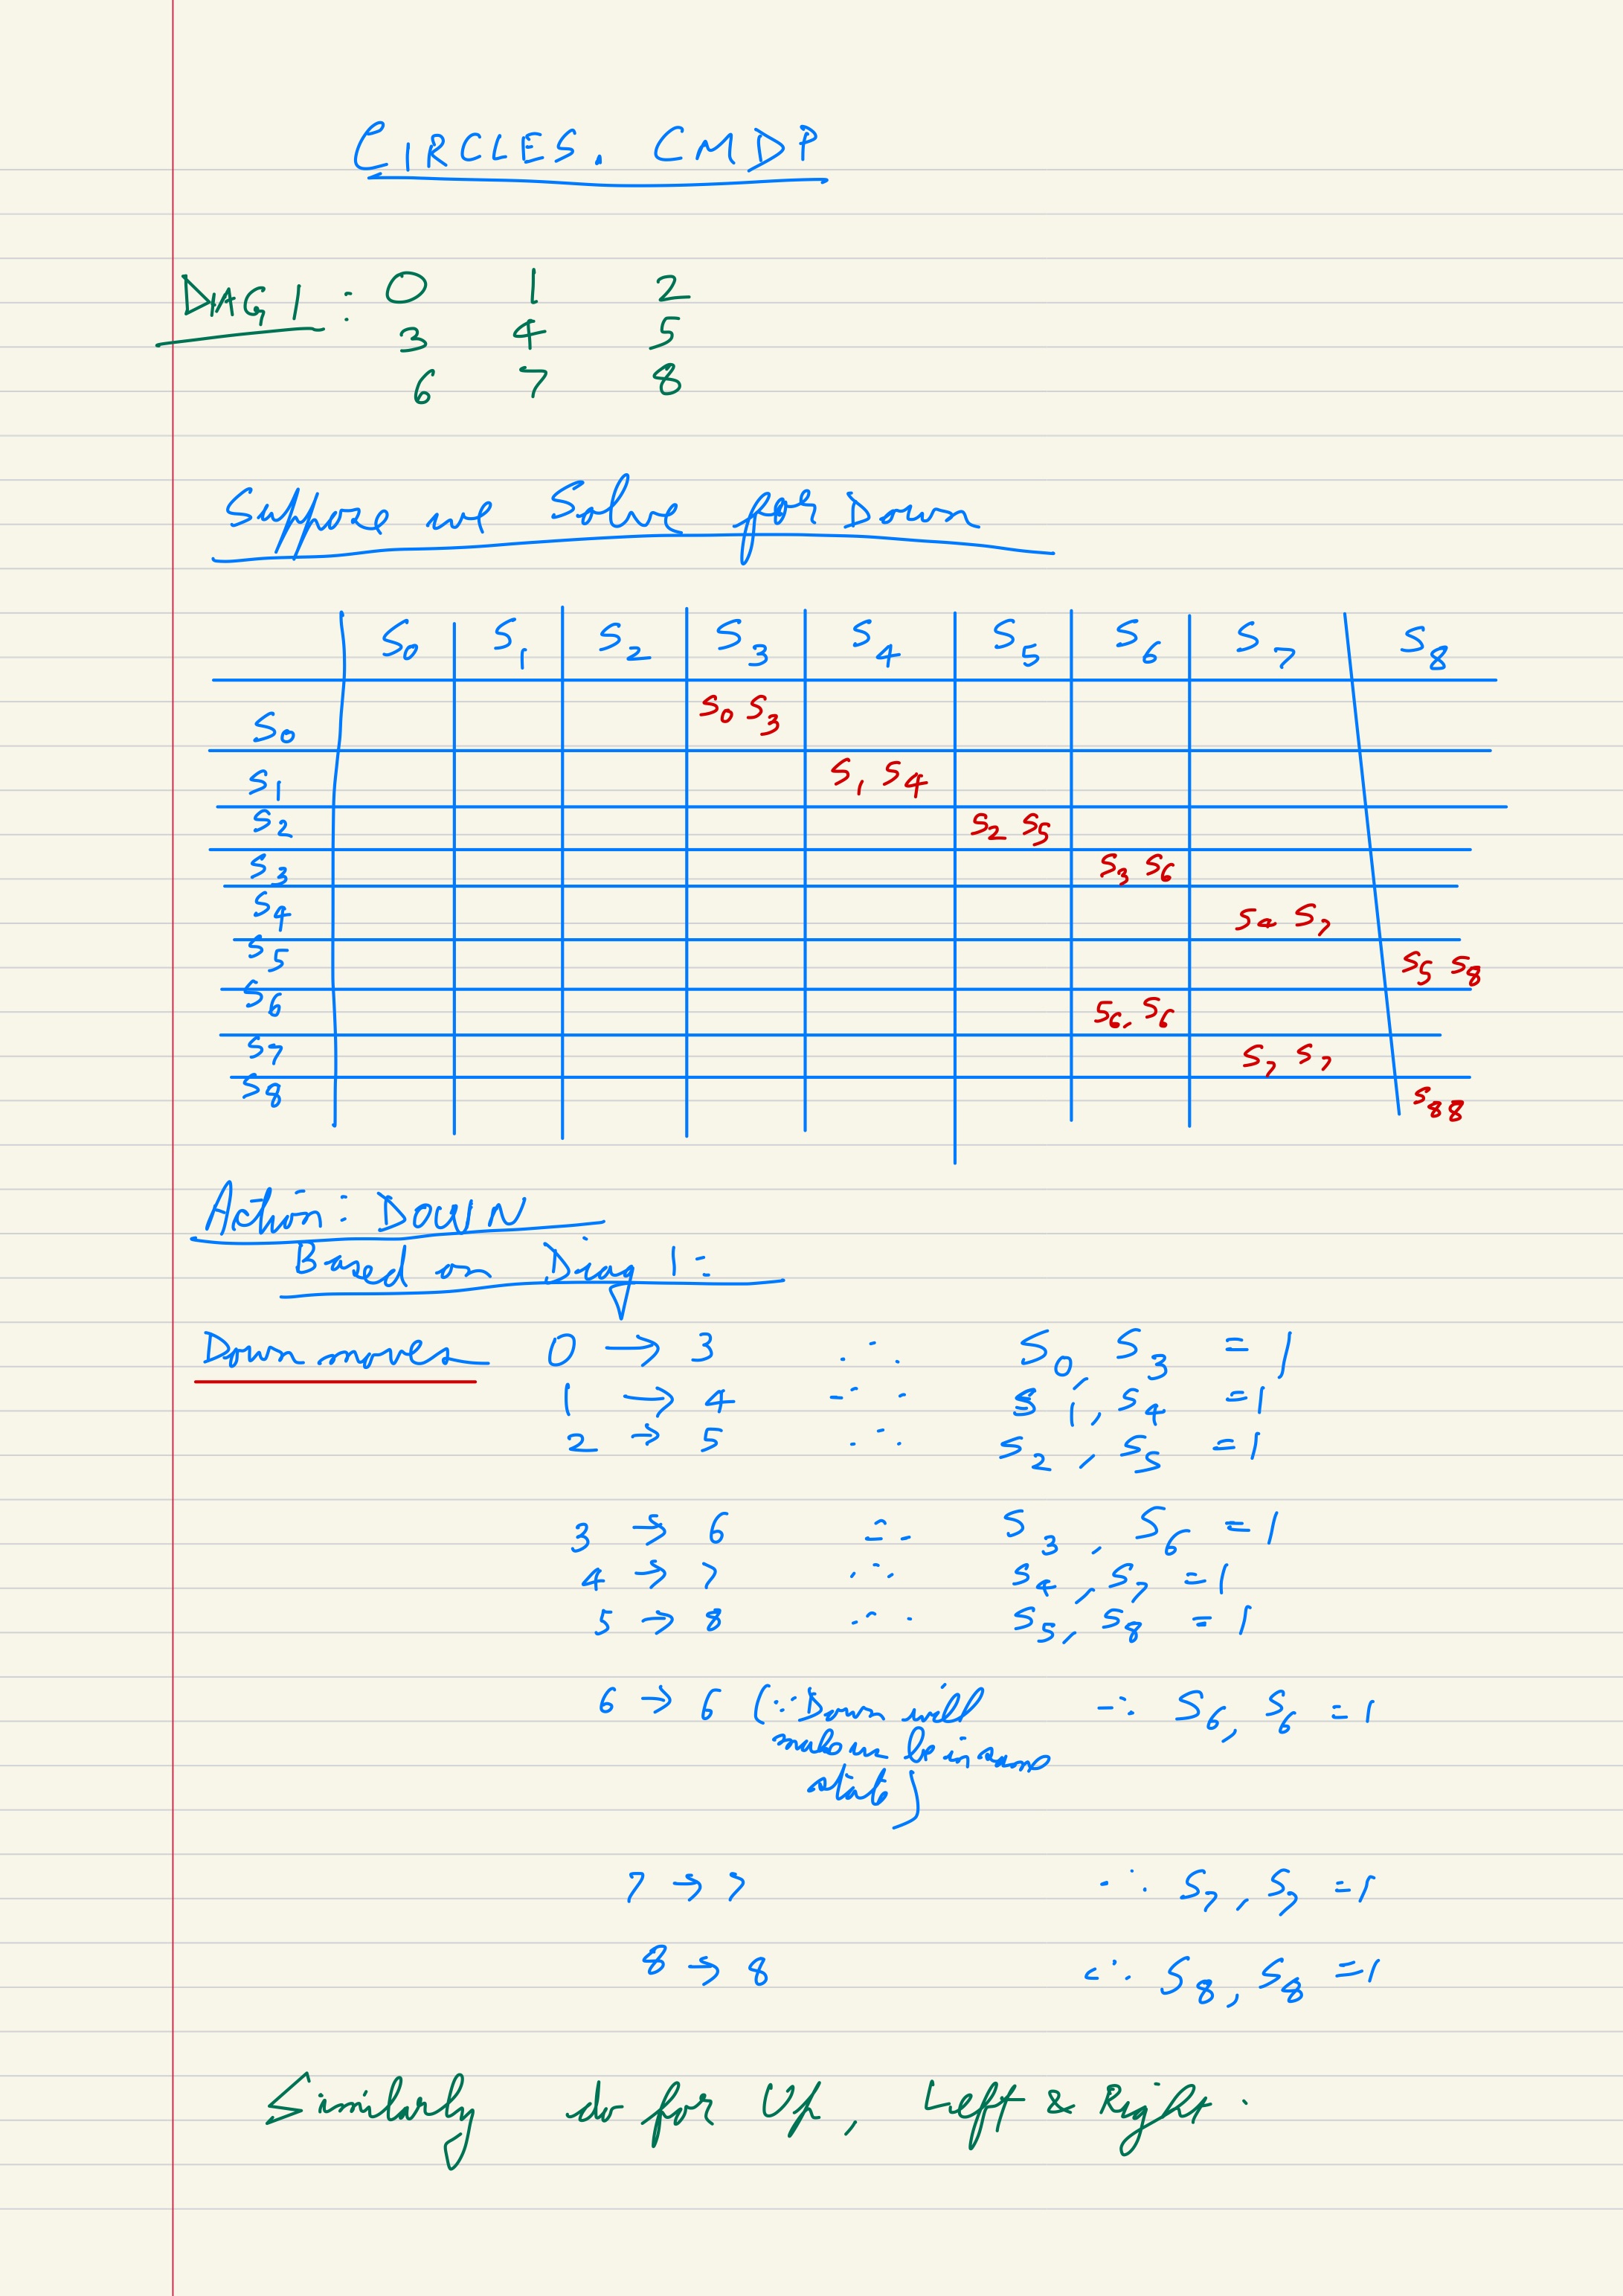 CIRCLES. CMDP
DIAG 1 : 0 1 2
3 4 5
6 7 8
Suppose we Solve for Down
S0 S1 S2 S3 S4 S5 S6 S7 S8
S0 S0 S3
S1 S1 S4
S2 S2 S5
S3 S3 S6
S4 S4 S7
S5 S5 S8
S6 S6, S6
S7 S7 S7
S8 S88
Action: DOWN
Based on Diag 1:
Down moves 0 → 3 ∴ S0, S3 = 1
1 → 4 ∴ S1, S4 = 1
2 → 5 ∴ S2, S5 = 1
3 → 6 ∴ S3, S6 = 1
4 → 7 ∴ S4, S7 = 1
5 → 8 ∴ S5, S8 = 1
6 → 6 (∵ Down will ∴ S6, S6 = 1
make us be in same
state)
7 → 7 ∴ S7, S7 = 1
8 → 8 ∴ S8, S8 = 1
Similarly do for Up, Left & Right.